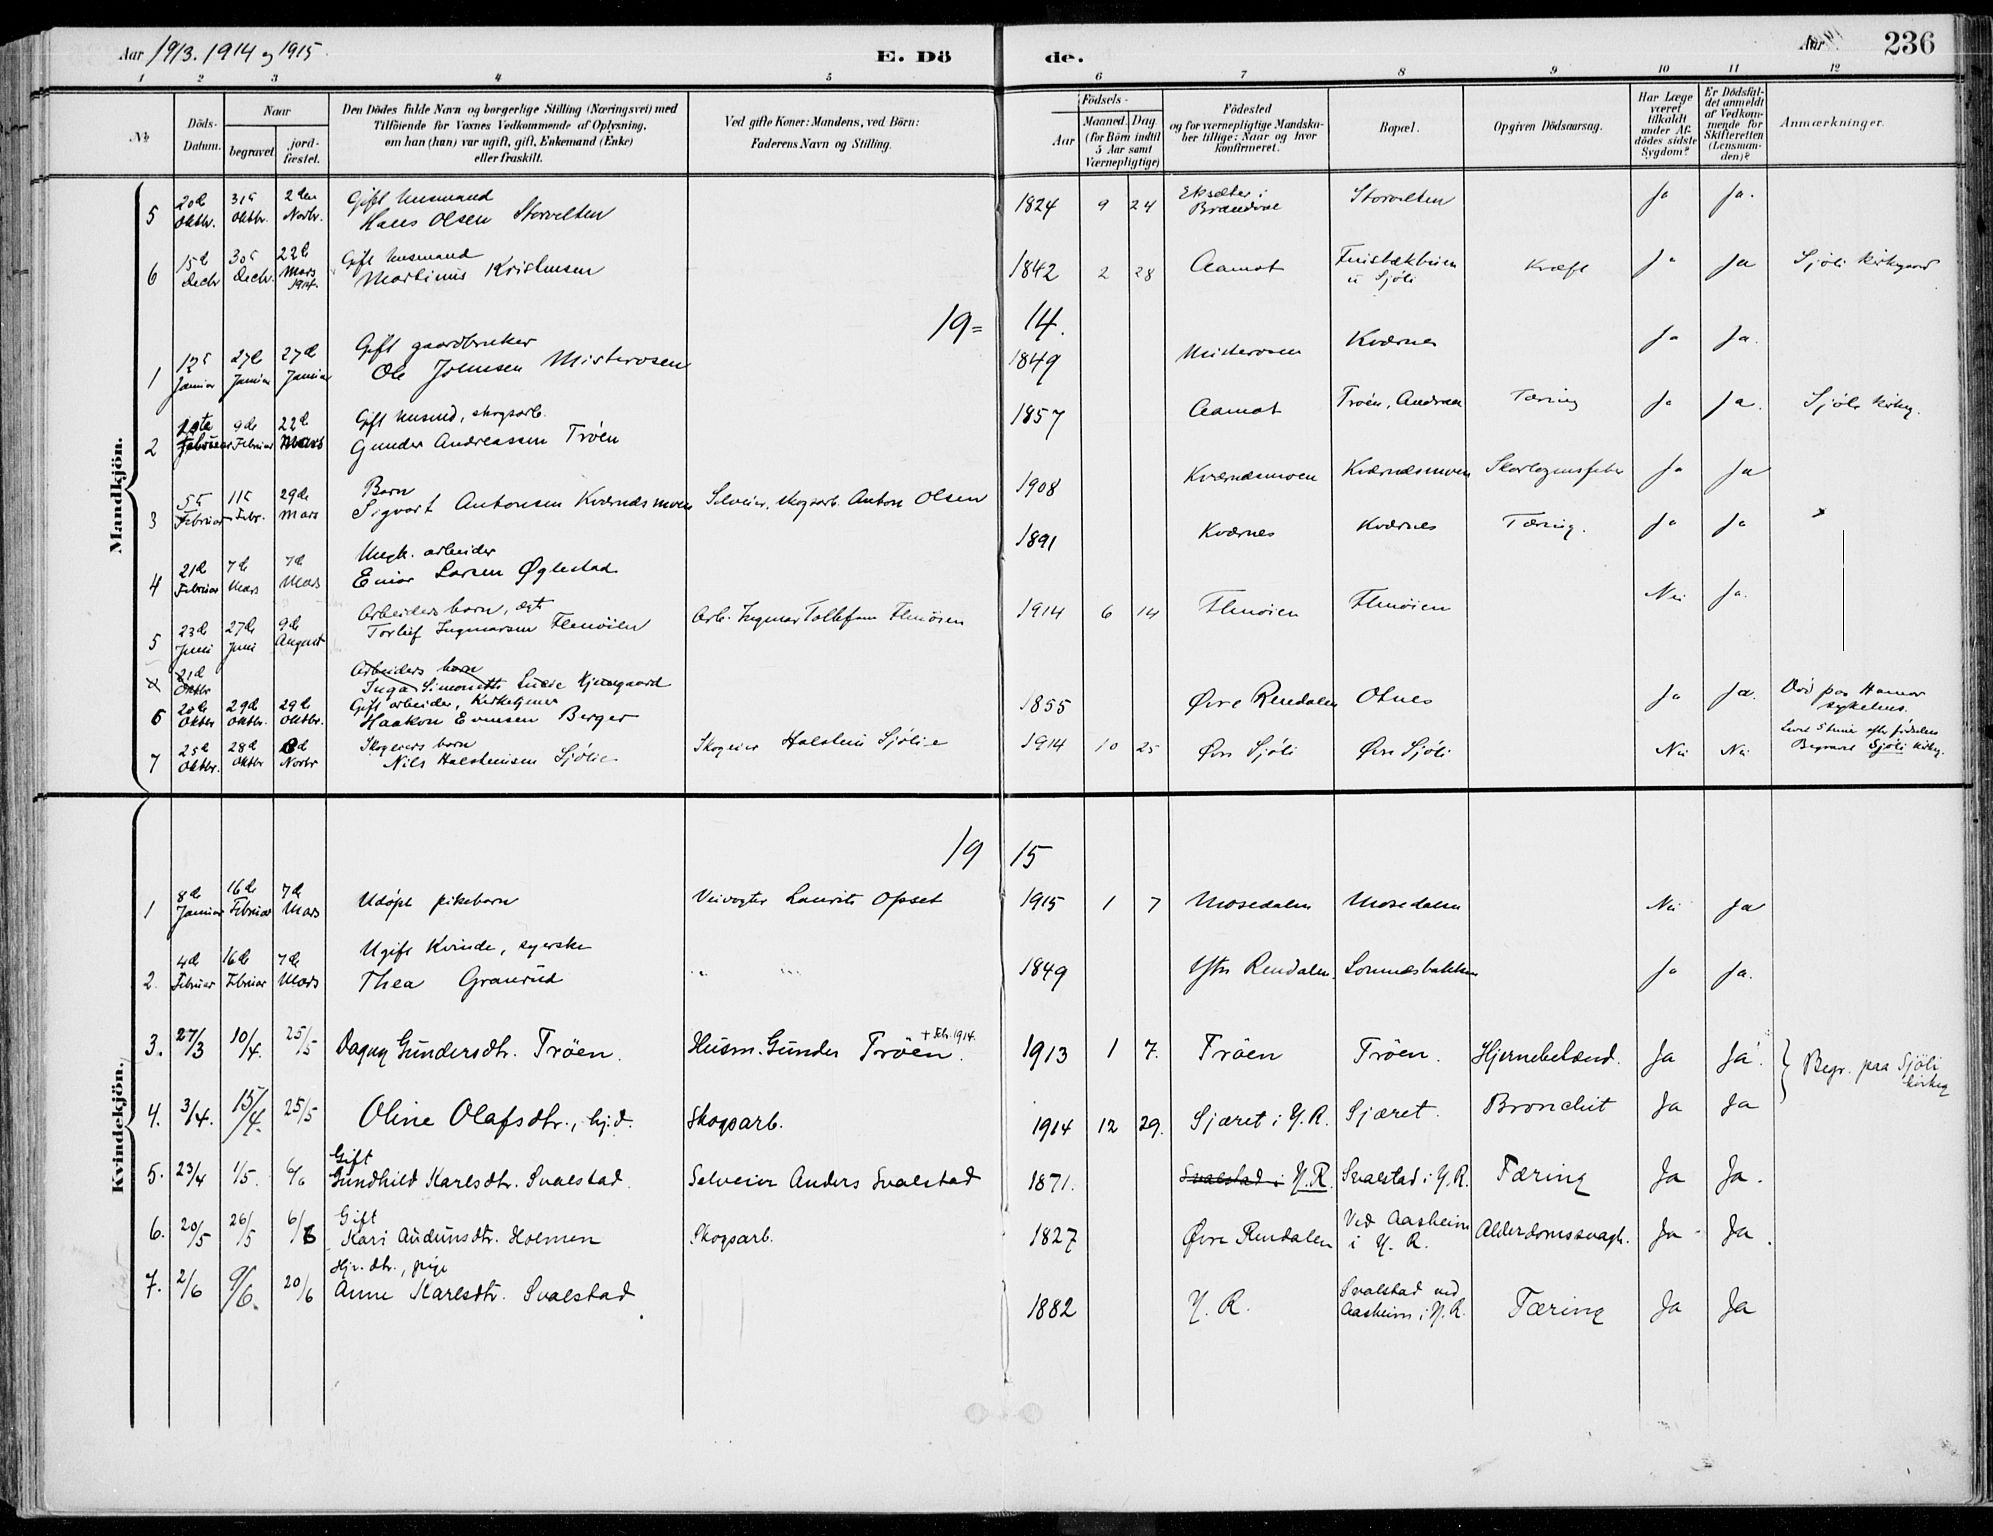 Aar 1913. 1914 og 1915
E. Döde.
Aar
236
1 2 3 4 5 6 7 8 9 10 11 12
No
Döds-Datum.
Naar
begravet.
jord-fæstet.
Den Dödes fulde Navn og borgerlige Stilling (Næringsvei) med
Tilföiende for Voxnes Vedkommende af Oplysning,
om han (hun) var ugift, gift, Enkemand (Enke)
eller fraskilt.
Ved gifte Koner: Mandens, ved Börn:
Faderens Navn og Stilling.
Födsels-
Aar
Maaned. Dag.
(for Börn indtil
5 Aar samt
Værnepligtige)
Födested
og for værnepligtige Mandska-
ber tillige: Naar og hvor
konfirmeret.
Bopæl.
Opgiven Dödsaarsag.
Har Læge
været
tilkaldt
under Af-
dödes sidste
Sygdom?
Er Dödsfal-
det anmeldt
af Vedkom-
mende for
Skifteretten
(Lensman-
den)?
Anmærkninger.
Mandkjön.
5 20d Oktbr. 31s Oktbr. 2den Novbr. Gift husmand
Hans Olsen Storvelten 1824 9 24 Eksæter i Brandvol Storvelten Ja Ja.
6 15d Decbr 30s Decbr. 22d Mars 1914. Gift husmand
Martinus Kristensen 1842 2 28 Aamot u Sjöli Kræft Ja Ja Sjöli Kirkgaard
19= 14.
1 12s Januar 27d Januar 27d Januar Gift gaardbruker
Ole Johnsen Misterosen 1849 Misterosen Kværnes Ja Ja.
2 Februar 9de Februar 22d Mars Gift husmd, skogsarb.
Gunder Andreassen Tröen 1857 Aamot Tröen, Andraa Tæring Ja Ja. Sjöli Kirkg.
3 5s Februar 11s Febr. 29de Mars Barn
Sigvart Antonsen Kværndsmoen Selveier, skogsarb. Anton Olsen 1908 Kværndsmoen Kværndsmoen Skarlagensfeber Ja Ja
4 21d Februar 7de Mars 7d Mars Ungk. arbeider
Einar Larsen Øglestad 1891 Kværnes Kværnes Tæring. Ja Ja x
5 23d Juni 27de Juni 9de August Arbeiders barn, ægte
Torleif Ingmarsen Elmöien Arb. Ingmar Tollefsen Elmöien 1914 6 14 Elmöien Elmöien Nei Ja.
x 21d Oktbr Arbeiders barn
Inga Simonette Lucie Kjernaard
6 20de Oktbr 29d Oktbr. 29de Oktbr. Gift arbeider, Kirketjener
Haakon Evensen Berger 1855 Øvre Rendalen Otnes Ja Ja. Död paa Hamar sykehus.
7 25d Oktbr. 28d Oktbr 8d Novbr Skogeiers barn
Nils Halsteinsen Sjölie Skogeier Halstein Sjölie 1914 10 25 Øvre Sjöli Øvre Sjöli Nei Nei Levet 5 timer efter födselen
Begravet Sjöli Kirkg.
19 15
Kvindekjön.
1 8d Januar 16de Februar 7d Mars Udöpt pikebarn Veivogter Laurits Opset 1915 1 7 Mosedalen Mosedalen Nei Ja
2. 4d Februar 16de Februar 7de Mars Ugift Kvinde, syerske
Thea Granrud 1849 Ytre Rendalen. Lomnesbakken Ja Ja.
3. 27/3 10/4. 25/5 Dagny Gundersdtr. Tröen. Husm. Gunder Tröen. + Feb. 1914. 1913 1 7. Tröen Tröen. Hjernebetænd. Ja Ja. } Begr. paa Sjöli kirkeg
4. 3/4. 15/4. 25/5 Oline Olafsdtr., hj.d. Skogsarb. 1914 12 29. Sjæret i Y.R. Sjæret. Bronchit Ja Ja
5. 23/4 1/5. 6/6 Gift
Gundhild Karlsdtr. Svalstad Selveier Anders Svalstad 1871. Svalstad i Y.R. Svalstad i Y.R. Tæring Ja Ja.
6. 20/5 26/5 6/6 Gift
Kari Audunsdtr. Holmen Skogsarb. 1827 Øvre Rendalen Ved Aasheim
i Y.R. Alderdomssvagh. Ja Ja.
7. 2/6 9/6. 20/6 Hjv. dtr., pige
Anne Karlsdtr. Svalstad 1882 Y.R. Svalstad ved
Aasheim i Y.R. Tæring Ja Ja